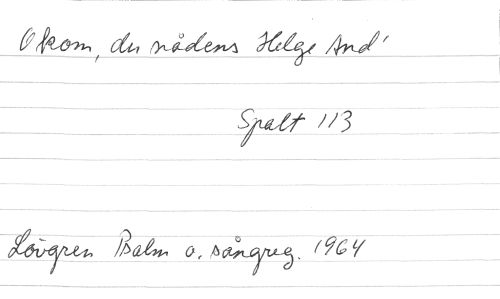 O kom, du nådens Helge And'
Spalt 113
Lövgren Psalm o. sångreg. 1964